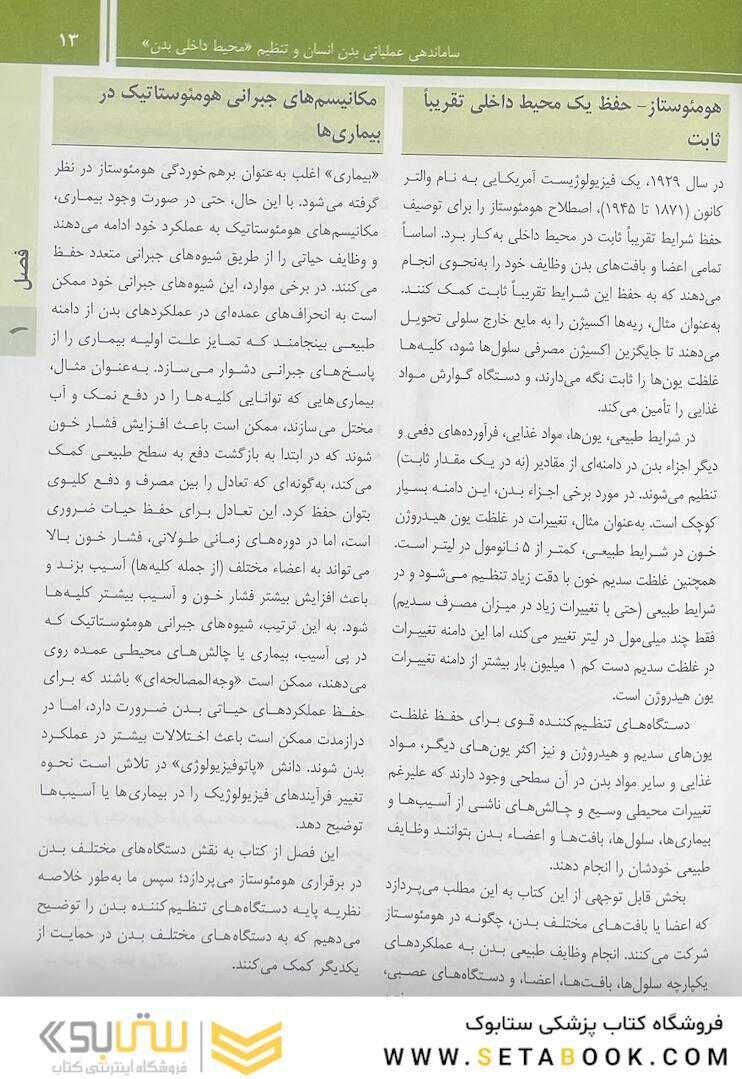 ۱۳
ساماندهی عملیاتی بدن انسان و تنظیم «محیط داخلی بدن»
فصل
۱
هومئوستاز- حفظ یک محیط داخلی تقریباً
ثابت
در سال ۱۹۲۹، یک فیزیولوژیست آمریکایی به نام والتر
کانون (۱۸۷۱ تا ۱۹۴۵)، اصطلاح هومئوستاز را برای توصیف
حفظ شرایط تقریباً ثابت در محیط داخلی به‌کار برد. اساساً
تمامی اعضا و بافت‌های بدن وظایف خود را به‌نحوی انجام
می‌دهند که به حفظ این شرایط تقریباً ثابت کمک کنند.
به‌عنوان مثال، ریه‌ها اکسیژن را به مایع خارج سلولی تحویل
می‌دهند تا جایگزین اکسیژن مصرفی سلول‌ها شود، کلیه‌ها
غلظت یون‌ها را ثابت نگه می‌دارند، و دستگاه گوارش مواد
غذایی را تأمین می‌کند.
در شرایط طبیعی، یون‌ها، مواد غذایی، فرآورده‌های دفعی و
دیگر اجزاء بدن در دامنه‌ای از مقادیر (نه در یک مقدار ثابت)
تنظیم می‌شوند. در مورد برخی اجزاء بدن، این دامنه بسیار
کوچک است. به‌عنوان مثال، تغییرات در غلظت یون هیدروژن
خون در شرایط طبیعی، کمتر از ۵ نانومول در لیتر است.
همچنین غلظت سدیم خون با دقت زیاد تنظیم می‌شود و در
شرایط طبیعی (حتی با تغییرات زیاد در میزان مصرف سدیم)
فقط چند میلی‌مول در لیتر تغییر می‌کند، اما این دامنه تغییرات
در غلظت سدیم دست کم ۱ میلیون بار بیشتر از دامنه تغییرات
یون هیدروژن است.
دستگاه‌های تنظیم‌کننده قوی برای حفظ غلظت
یون‌های سدیم و هیدروژن و نیز اکثر یون‌های دیگر، مواد
غذایی و سایر مواد بدن در آن سطحی وجود دارند که علیرغم
تغییرات محیطی وسیع و چالش‌های ناشی از آسیب‌ها و
بیماری‌ها، سلول‌ها، بافت‌ها و اعضاء بدن بتوانند وظایف
طبیعی خودشان را انجام دهند.
بخش قابل توجهی از این کتاب به این مطلب می‌پردازد
که اعضا یا بافت‌های مختلف بدن، چگونه در هومئوستاز
شرکت می‌کنند. انجام وظایف طبیعی بدن به عملکردهای
یکپارچه سلول‌ها، بافت‌ها، اعضا، و دستگاه‌های عصبی،
مکانیسم‌های جبرانی هومئوستاتیک در
بیماری‌ها
«بیماری» اغلب به‌عنوان برهم‌خوردگی هومئوستاز در نظر
گرفته می‌شود. با این حال، حتی در صورت وجود بیماری،
مکانیسم‌های هومئوستاتیک به عملکرد خود ادامه می‌دهند
و وظایف حیاتی را از طریق شیوه‌های جبرانی متعدد حفظ
می‌کنند. در برخی موارد، این شیوه‌های جبرانی خود ممکن
است به انحراف‌های عمده‌ای در عملکردهای بدن از دامنه
طبیعی بینجامند که تمایز علت اولیه بیماری را از
پاسخ‌های جبرانی دشوار می‌سازد. به‌عنوان مثال،
بیماری‌هایی که توانایی کلیه‌ها را در دفع نمک و آب
مختل می‌سازند، ممکن است باعث افزایش فشار خون
شوند که در ابتدا به بازگشت دفع به سطح طبیعی کمک
می‌کند، به‌گونه‌ای که تعادل را بین مصرف و دفع کلیوی
بتوان حفظ کرد. این تعادل برای حفظ حیات ضروری
است، اما در دوره‌های زمانی طولانی، فشار خون بالا
می‌تواند به اعضاء مختلف (از جمله کلیه‌ها) آسیب بزند و
باعث افزایش بیشتر فشار خون و آسیب بیشتر کلیه‌ها
شود. به این ترتیب، شیوه‌های جبرانی هومئوستاتیک که
در پی آسیب، بیماری یا چالش‌های محیطی عمده روی
می‌دهند، ممکن است «وجه‌المصالحه‌ای» باشند که برای
حفظ عملکردهای حیاتی بدن ضرورت دارد، اما در
درازمدت ممکن است باعث اختلالات بیشتر در عملکرد
بدن شوند. دانش «پاتوفیزیولوژی» در تلاش است نحوه
تغییر فرآیندهای فیزیولوژیک را در بیماری‌ها یا آسیب‌ها
توضیح دهد.
این فصل از کتاب به نقش دستگاه‌های مختلف بدن
در برقراری هومئوستاز می‌پردازد؛ سپس ما به‌طور خلاصه
نظریه پایه دستگاه‌های تنظیم‌کننده بدن را توضیح
می‌دهیم که به دستگاه‌های مختلف بدن در حمایت از
یکدیگر کمک می‌کنند.
فروشگاه کتاب پزشکی ستابوک
WWW.SETABOOK.COM
ستابوک
فروشگاه اینترنتی کتاب